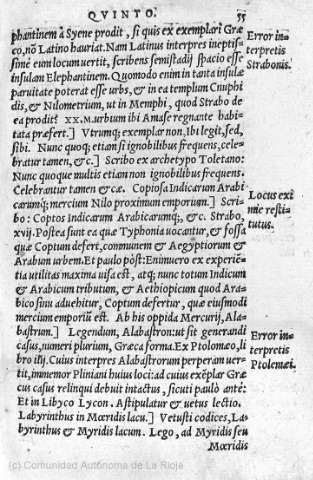 QVINTO. 55
phantinem à Syene prodit, si quis ex exemplari Græ
co, nõ Latino hauriat. Nam Latinus interpres ineptis
simè eum locum vertit, scribens semistadij spacio esse
insulam Elephantinem. Quomodo enim in tanta insulæ
paruitate poterat esse urbs, & in ea templum Cnuphi
dis, & Nilometrium, ut in Memphi, quod Strabo de
ea prodit? XX.M.urbium ibi Amase regnante habi
tata præfert.] Vtrumq; exemplar non, Ibi legit, sed,
sibi. Nunc quoq; etian si ignobilibus frequens, cele-
bratur tamen, & c.] Scribo ex archetypo Toletano:
Nunc quoque multis etian non ignobilibus frequens.
Celebrantur tamen & cæ. Copiosa Indicarum Arabi
carumq; mercium Nilo proximum emporium.] Scri-
bo: Coptos Indicarum Arabicarumq;, & c. Strabo,
xvij. Postea sunt ea quæ Typhonia uocantur, & fossa
quæ Coptum defert, communem & Aegyptiorum &
Arabum urbem. Et paulo pòst: Enimuero ex experiẽ-
tia utilitas maxima uisa est, atq; nunc totum Indicum
& Arabicum tributum, & Aethiopicum quod Ara-
bico sinu aduehitur, Coptum defertur, quæ eiusmodi
mercium emporiũ est. Ab his oppida Mercurij, Ala-
bastrum.] Legendum, Alabastron: ut sit generandi
casus, numeri plurium, Græca forma. Ex Ptolomæo, li
bro iiij. Cuius interpres Alabastrorum perperam uer-
tit, immemor Pliniani huius loci: ad cuius exẽplar Græ
cus casus relinqui debuit intactus, sicuti paulò antè:
Et in Libyco Lycon. Astipulatur & uetus lectio.
Labyrinthus in Mœridis lacu.] Vetusti codices, La-
byrinthus & Myridis lacum. Lego, ad Myridis seu
Mœridis
Error in-
terpretis
Strabonis.
Locus exi
miè resti-
tutus.
Error in-
terpretis
Ptolemæi.
(c) Comunidad Autónoma de La Rioja